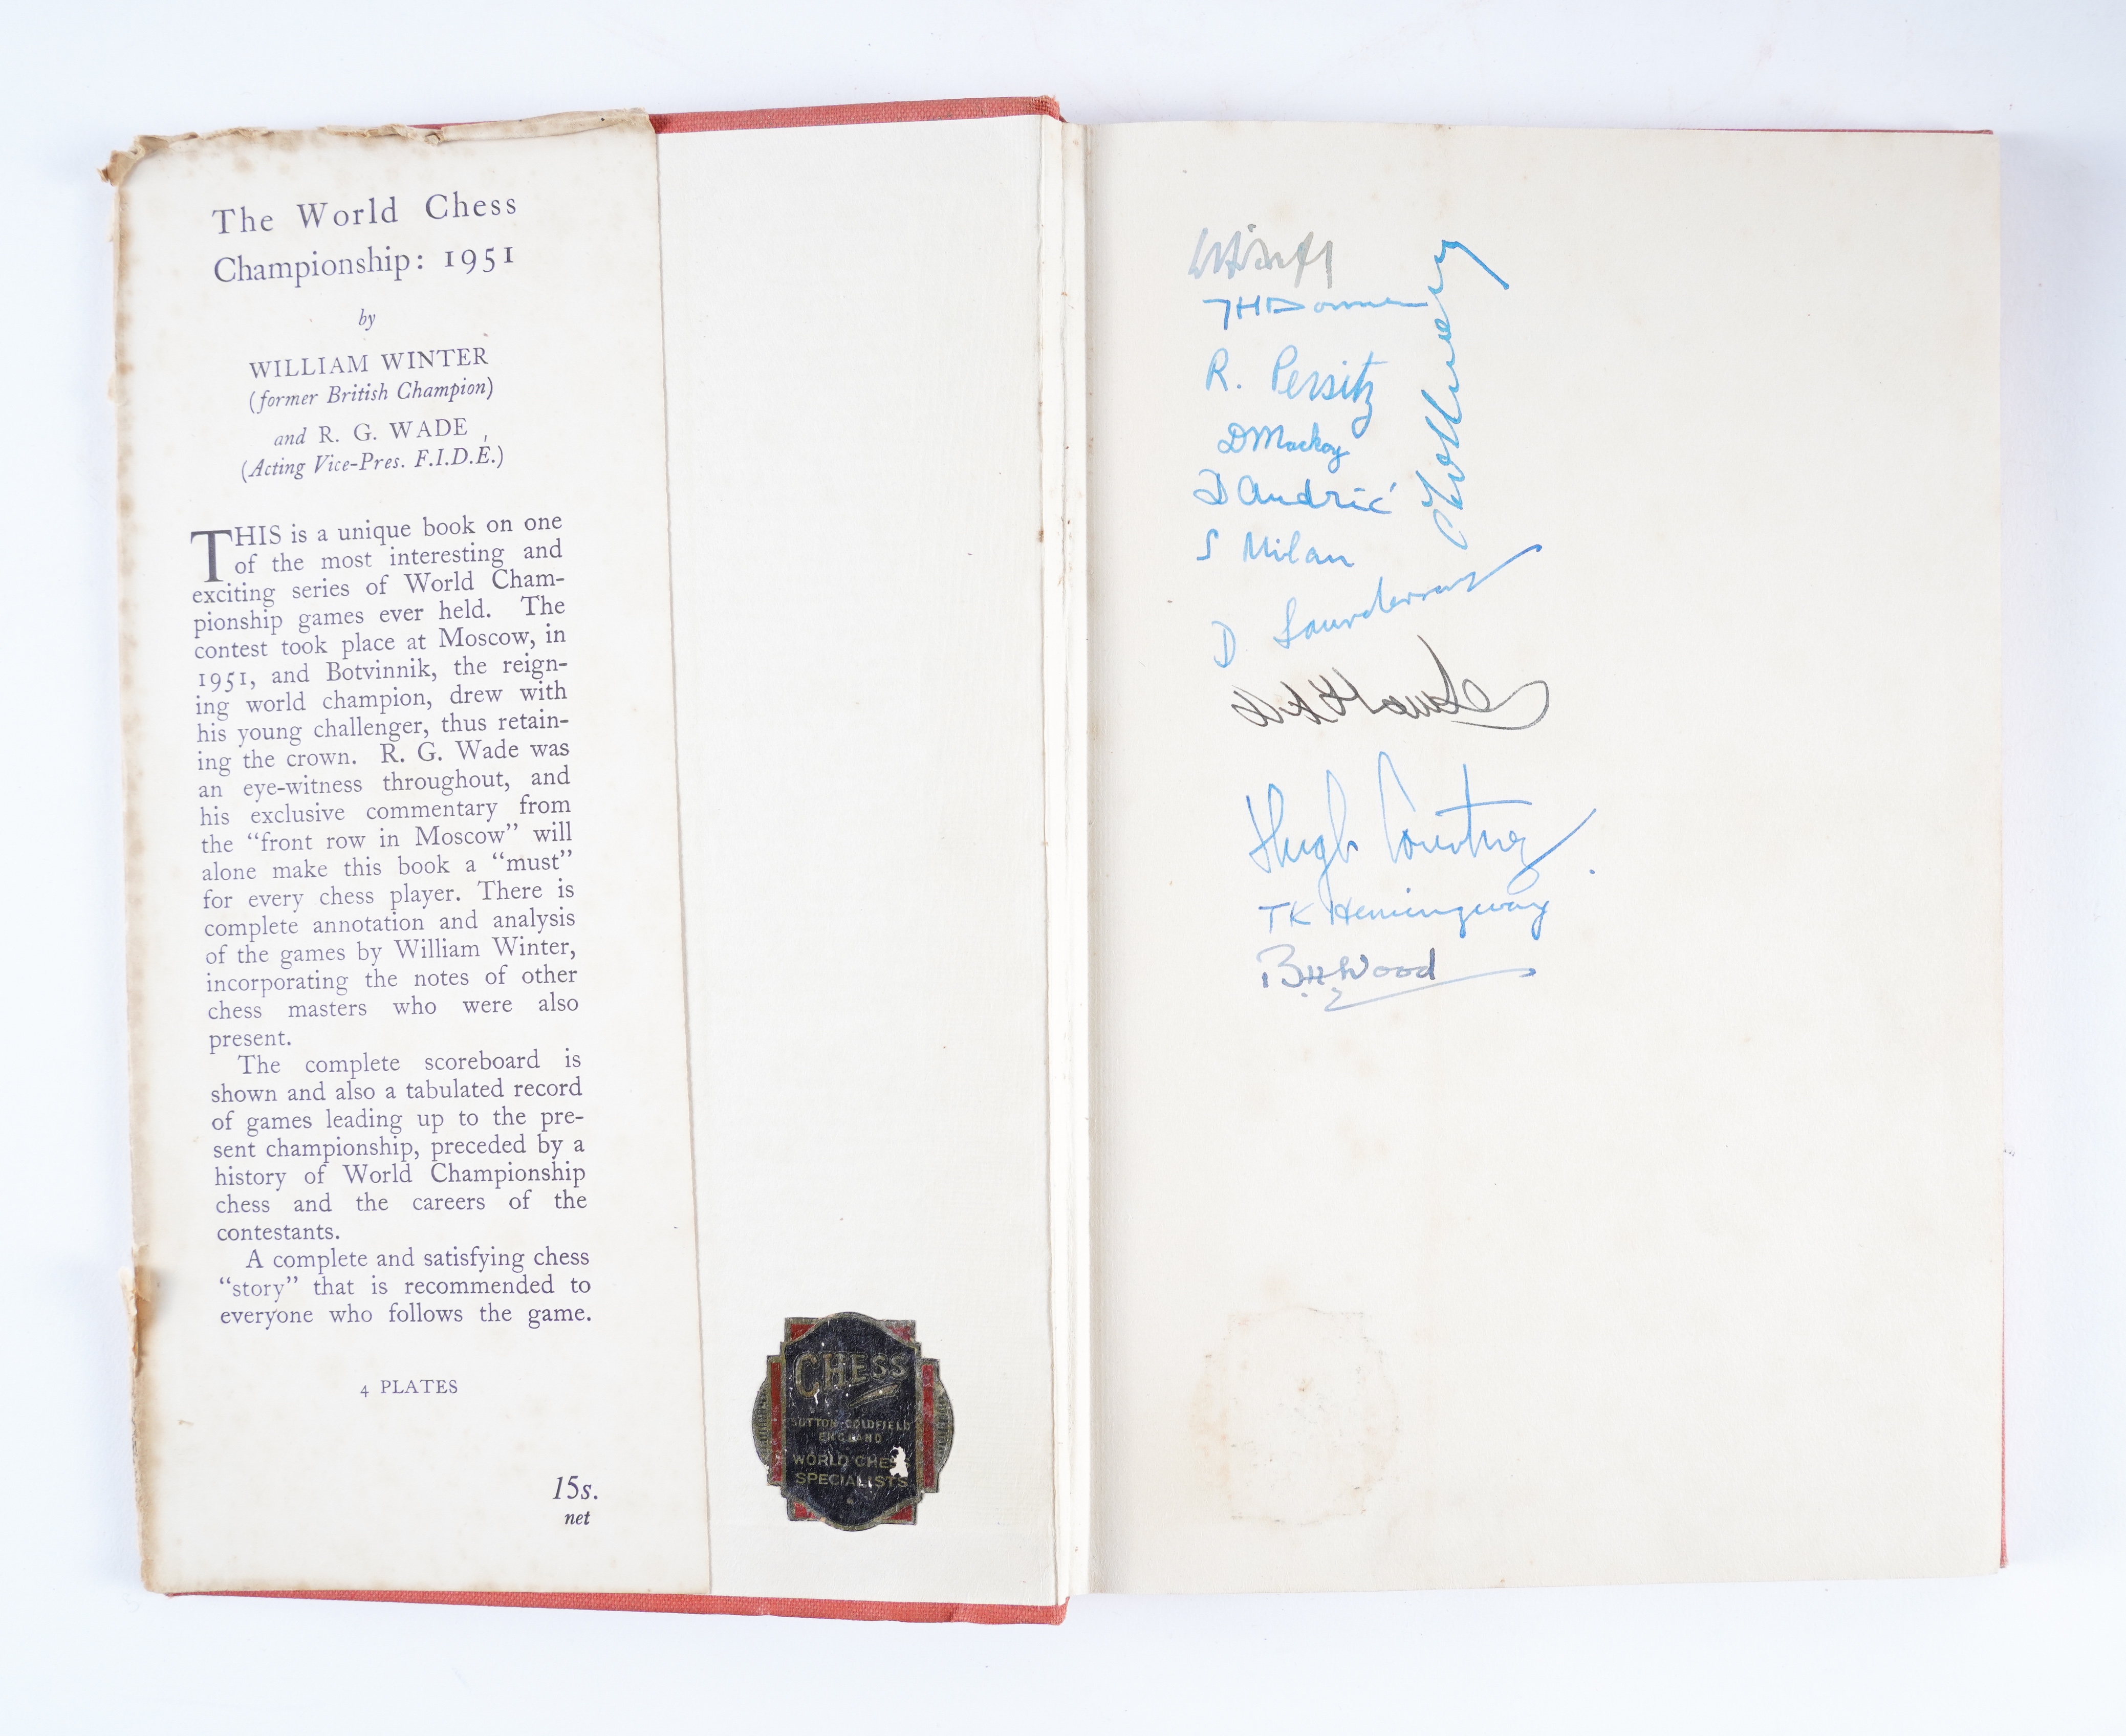 The World Chess
Championship: 1951
by
WILLIAM WINTER
(former British Champion)
and R. G. WADE
(Acting Vice-Pres. F.I.D.E.)
THIS is a unique book on one
of the most interesting and
exciting series of World Cham-
pionship games ever held. The
contest took place at Moscow, in
1951, and Botvinnik, the reign-
ing world champion, drew with
his young challenger, thus retain-
ing the crown. R. G. Wade was
an eye-witness throughout, and
his exclusive commentary from
the “front row in Moscow” will
alone make this book a “must”
for every chess player. There is
complete annotation and analysis
of the games by William Winter,
incorporating the notes of other
chess masters who were also
present.
The complete scoreboard is
shown and also a tabulated record
of games leading up to the pre-
sent championship, preceded by a
history of World Championship
chess and the careers of the
contestants.
A complete and satisfying chess
“story” that is recommended to
everyone who follows the game.
4 PLATES
15s.
net
CHESS
SUTTON COLDFIELD
ENGLAND
WORLD CHESS
SPECIALISTS
JH Donner
R. Persitz
D Mackay
D Andrić
S Milan
D Saunderson
Hugh Courtney
TK Hemingway
B.H. Wood